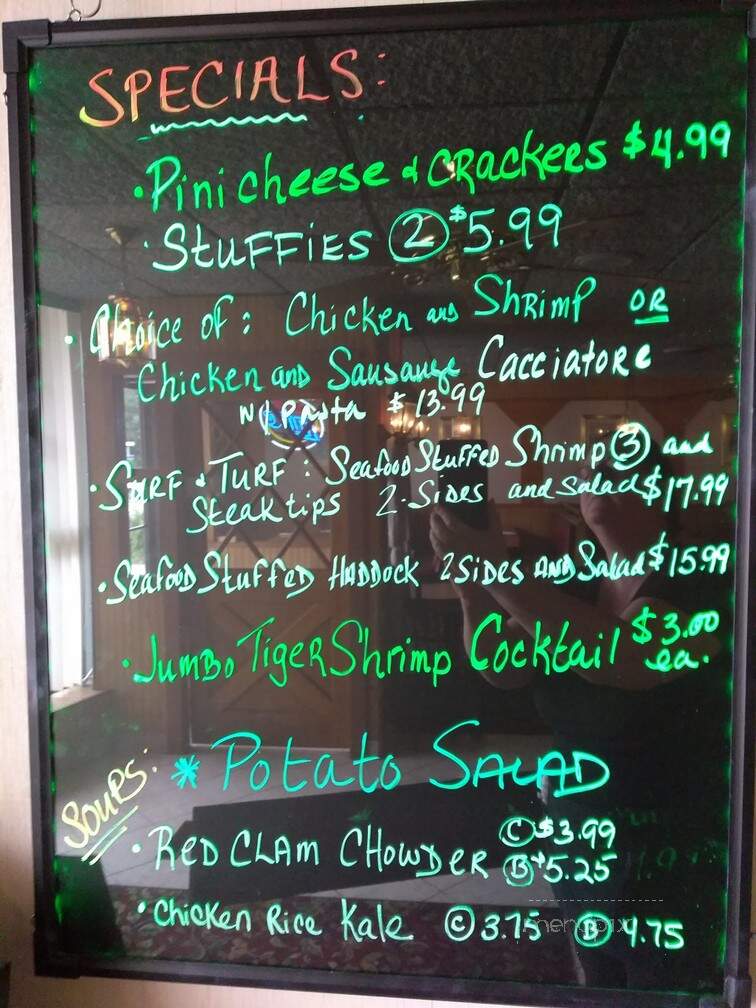 SPECIALS:
• Pini cheese & CRACKERS $4.99
• STUFFIES ② $5.99
• Choice of: Chicken and Shrimp OR
Chicken and Sausauge Cacciatore
W/ Pasta $13.99
• SURF & TURF: Seafood Stuffed Shrimp ③ and
Steak tips 2-Sides and Salad $17.99
• Seafood Stuffed HADDOCK 2 Sides AND Salad $15.99
• Jumbo Tiger Shrimp Cocktail $3.00 ea.
* Potato SALAD
SOUPS:
• RED CLAM CHOWDER Ⓒ $3.99
Ⓑ $5.25
• Chicken Rice Kale Ⓒ 3.75 Ⓑ 4.75
menupix